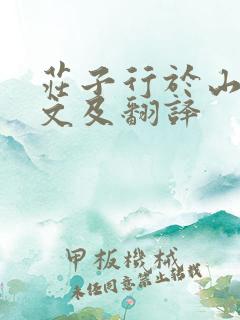 莊子行於山
文及翻譯
甲板機械
未經同意禁止轉載